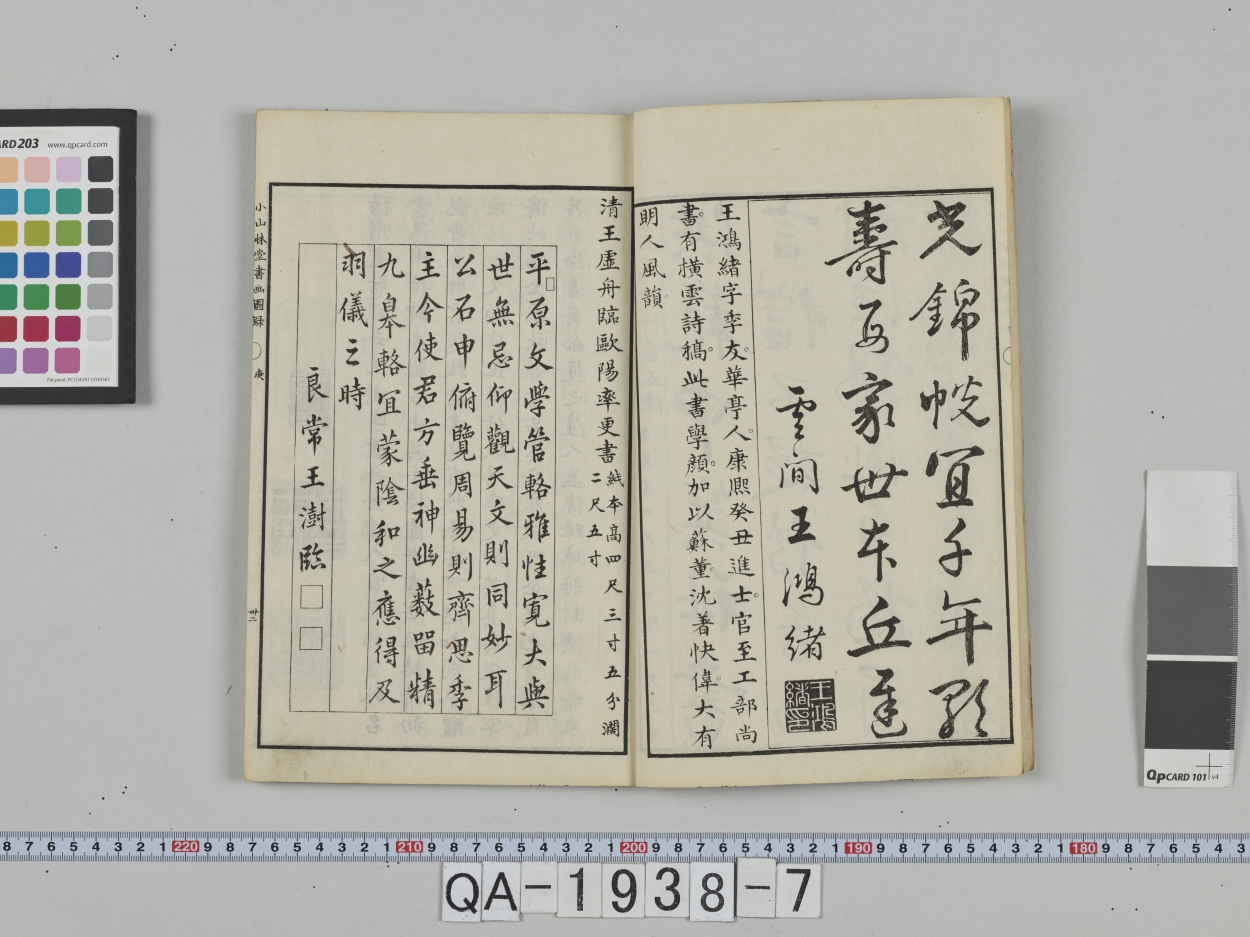 光錦帨宜千年點
壽母家世本丘遲
雲間王鴻緒
王鴻緒印
王鴻緒字季友。華亭人。康熙癸丑進士。官至工部尚
書。有横雲詩稿。此書學顏。加以蘇董。沈著快偉。大有
明人風韻。
清王虛舟臨歐陽率更書 紙本高四尺三寸五分濶二尺五寸
平原文學管輅雅性寬大與
世無忌仰觀天文則同妙耳
公石申俯覽周易則齊思季
主今使君方垂神幽藪留精
九皋輅宜蒙陰和之應得及
羽儀之時
良常王澍臨
小山林堂書画圖録
庚
卅二
CARD 203 www.qpcard.com
QpCARD 101 v4
8 7 6 5 4 3 2 1 220 9 8 7 6 5 4 3 2 1 210 9 8 7 6 5 4 3 2 1 200 9 8 7 6 5 4 3 2 1 190 9 8 7 6 5 4 3 2 1 180 9 8 7 6 5 4 3
QA-1938-7